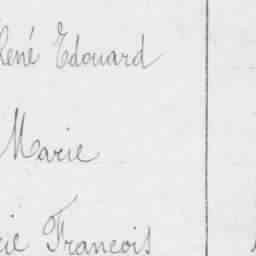 René Edouard
Marie
François